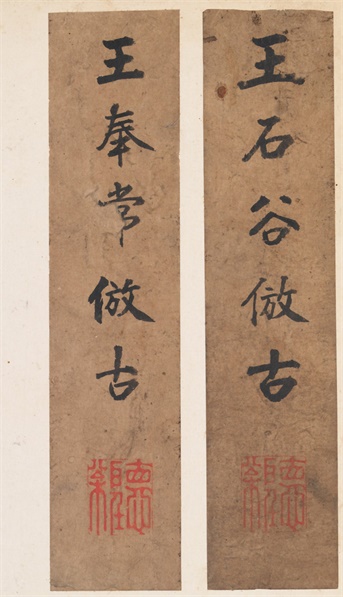 王石谷倣古
王奉常倣古